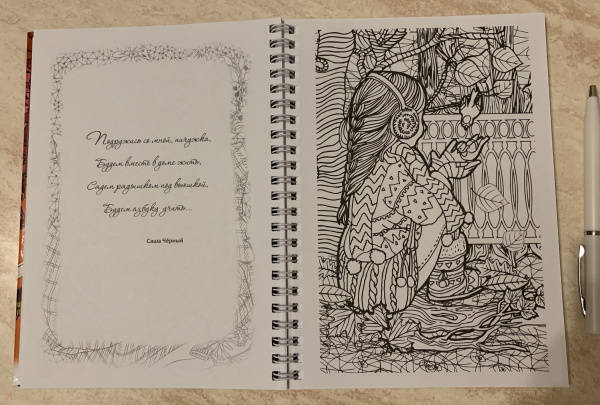 Подружись со мной, пичужка,
Будем вместе в доме жить,
Сядем рядышком под вьюшкой,
Будем азбуку учить...
Саша Чёрный